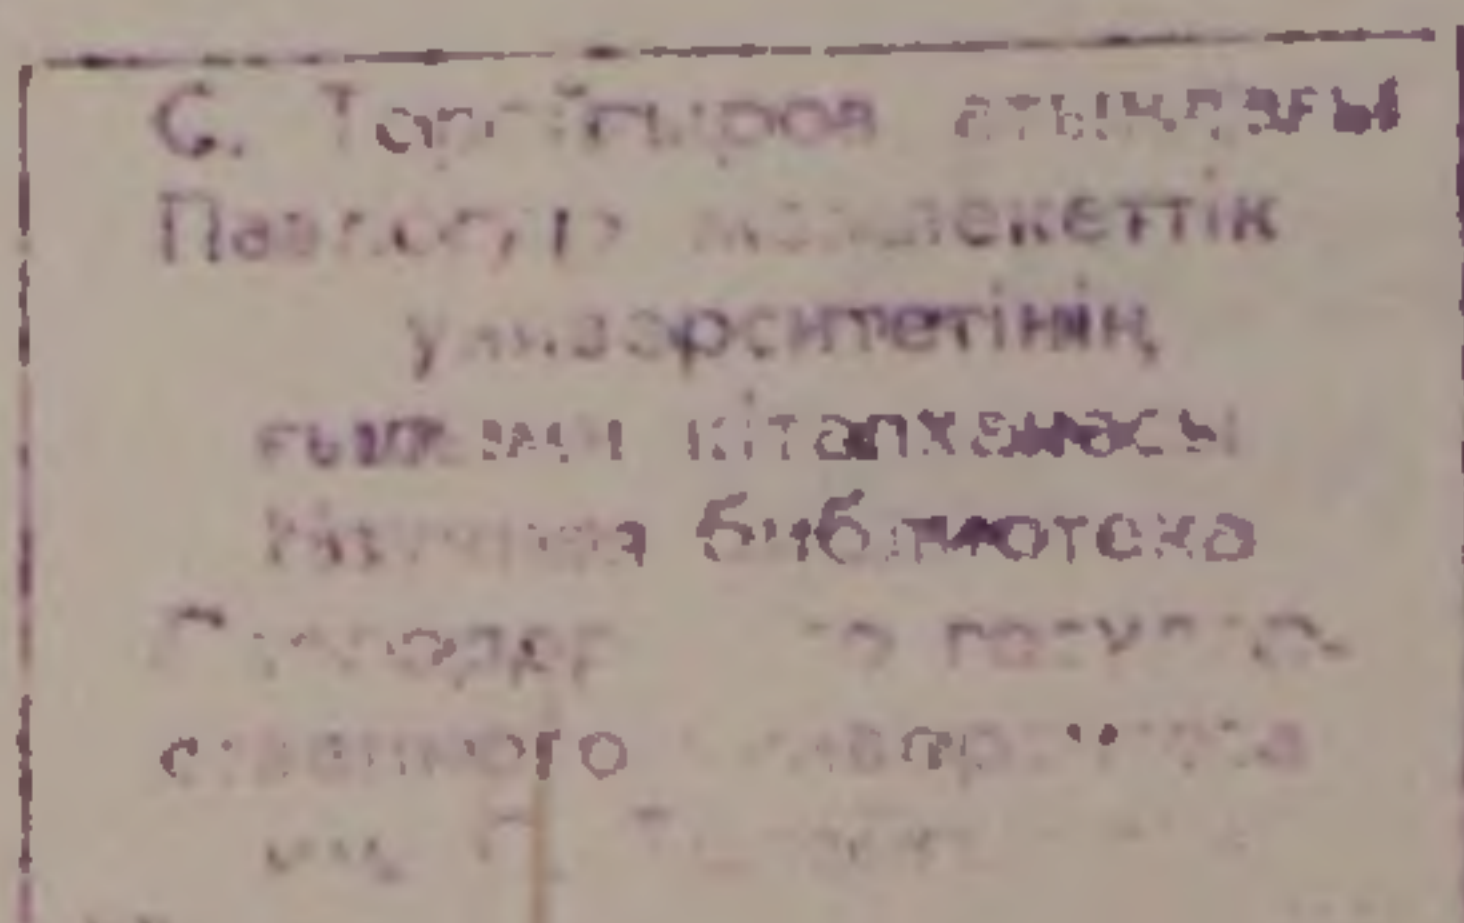 С. Торайғыров атындағы
Павлодар мемлекеттік
университетінің
ғылыми кітапханасы
научная библиотека
Павлодарского государ-
ственного университета
им. С. Торайгырова